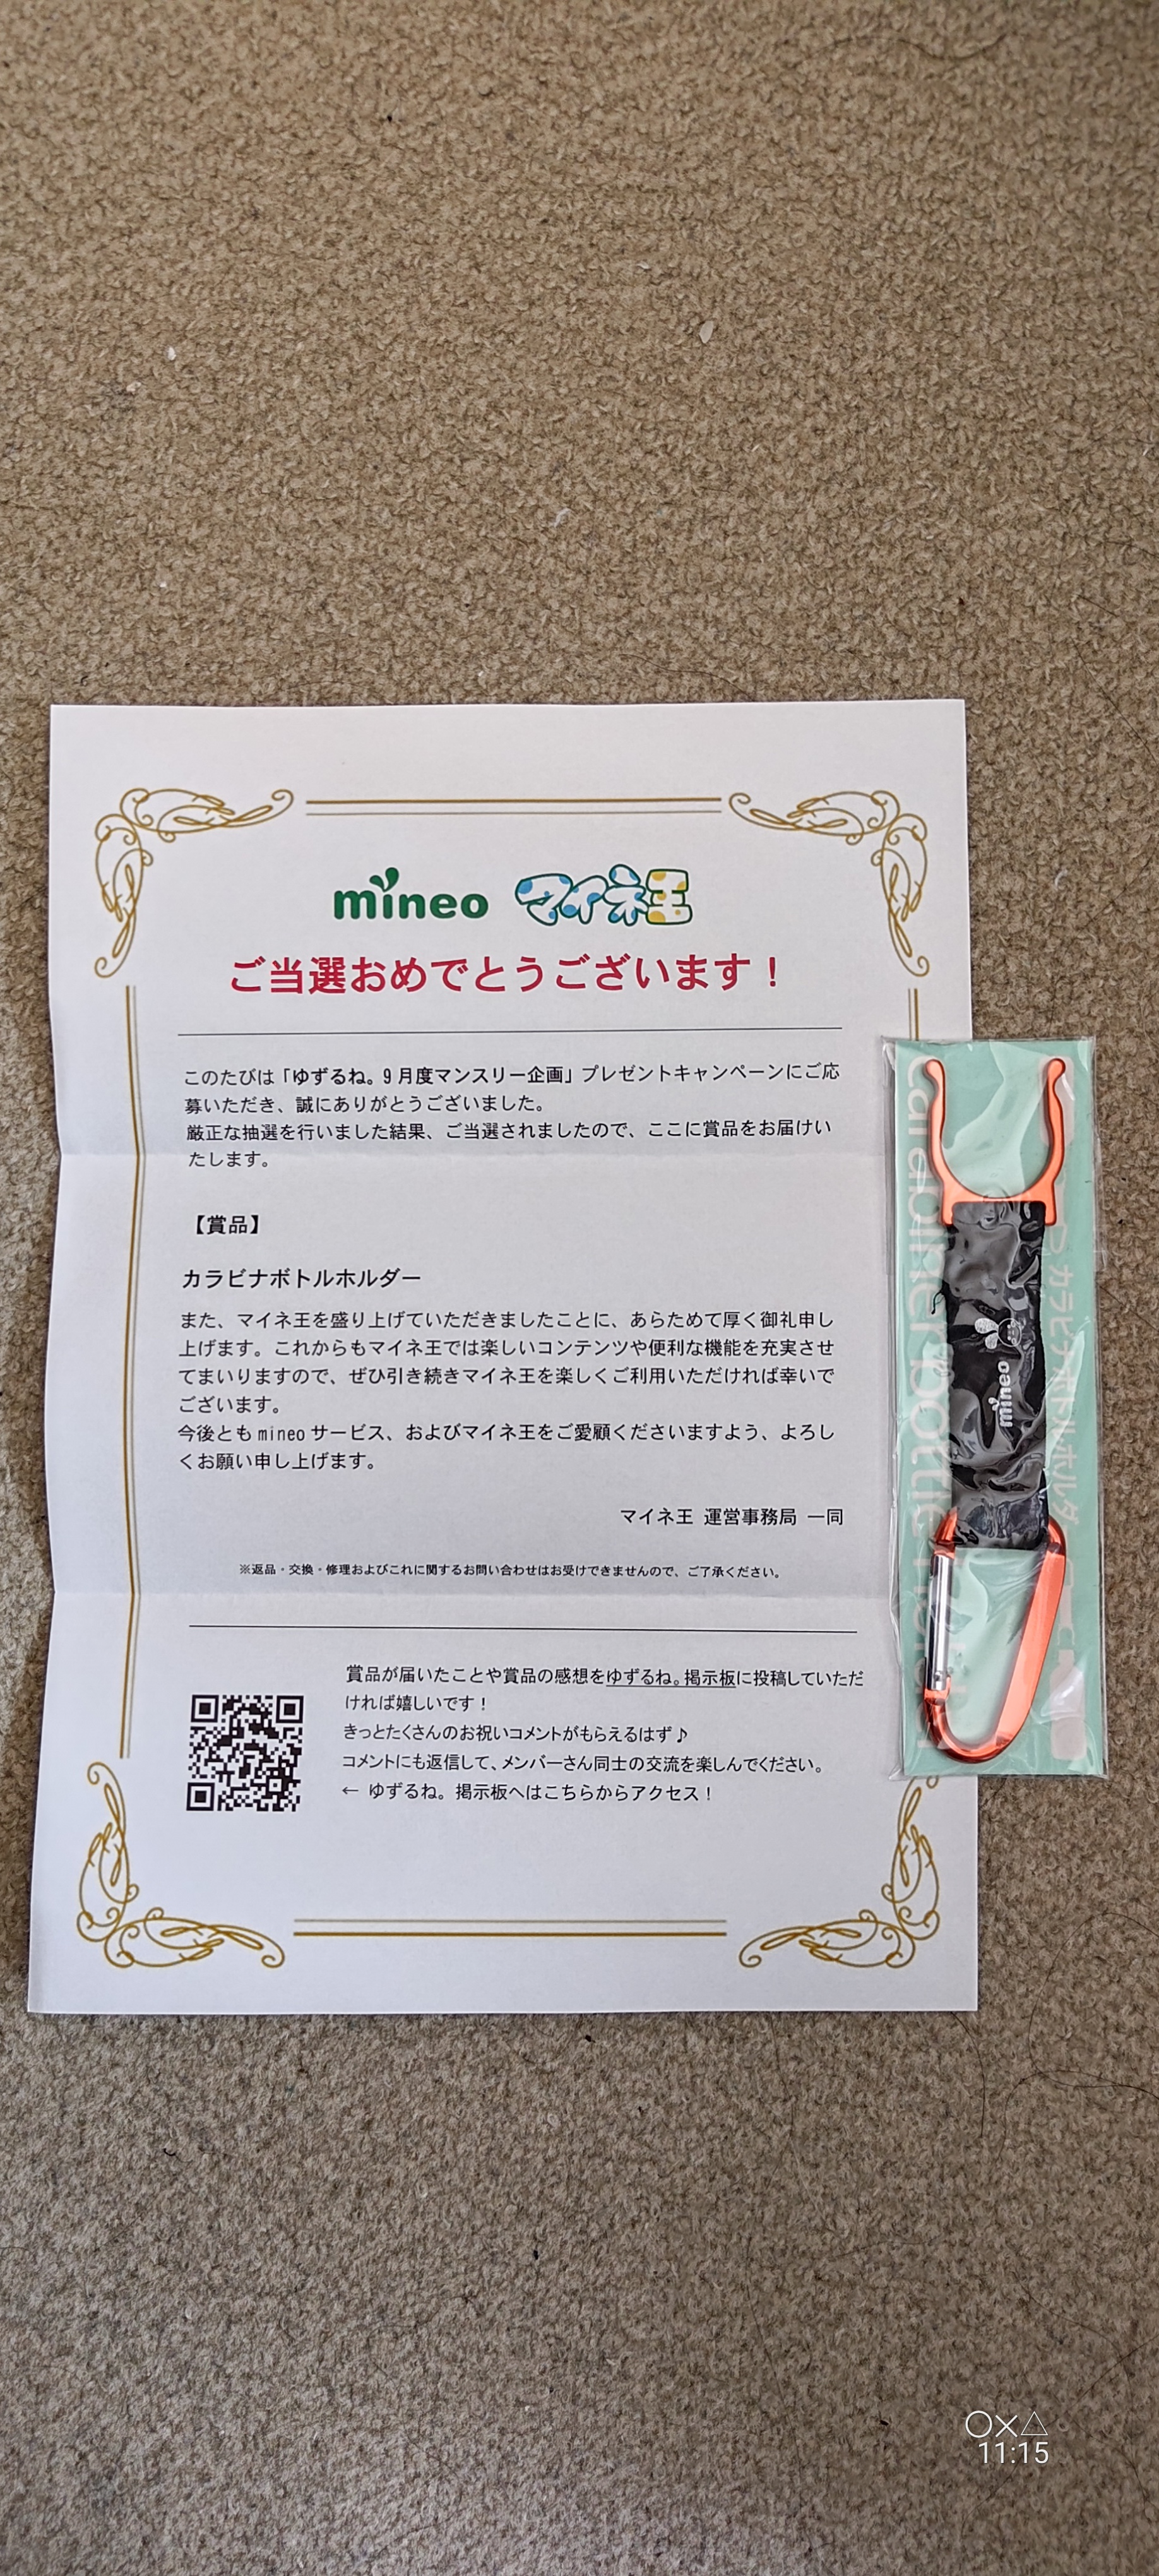 mineo マイネ王
ご当選おめでとうございます！
このたびは「ゆずるね。9月度マンスリー企画」プレゼントキャンペーンにご応
募いただき、誠にありがとうございました。
厳正な抽選を行いました結果、ご当選されましたので、ここに賞品をお届けい
たします。
【賞品】
カラビナボトルホルダー
また、マイネ王を盛り上げていただきましたことに、あらためて厚く御礼申し
上げます。これからもマイネ王では楽しいコンテンツや便利な機能を充実させ
てまいりますので、ぜひ引き続きマイネ王を楽しくご利用いただければ幸いで
ございます。
今後とも mineo サービス、およびマイネ王をご愛顧くださいますよう、よろし
くお願い申し上げます。
マイネ王 運営事務局 一同
※返品・交換・修理およびこれに関するお問い合わせはお受けできませんので、ご了承ください。
賞品が届いたことや賞品の感想をゆずるね。掲示板に投稿していただ
ければ嬉しいです！
きっとたくさんのお祝いコメントがもらえるはず♪
コメントにも返信して、メンバーさん同士の交流を楽しんでください。
← ゆずるね。掲示板へはこちらからアクセス！
carabiner bottle
mineo
カラビナボトルホルダ
○×△
11:15